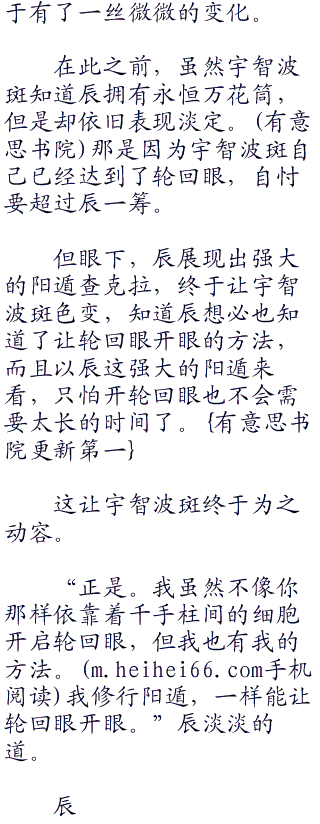 于有了一丝微微的变化。
在此之前，虽然宇智波
斑知道辰拥有永恒万花筒，
但是却依旧表现淡定。(有意
思书院)那是因为宇智波斑自
己已经达到了轮回眼，自忖
要超过辰一筹。
但眼下，辰展现出强大
的阳遁查克拉，终于让宇智
波斑色变，知道辰想必也知
道了让轮回眼开眼的方法，
而且以辰这强大的阳遁来
看，只怕开轮回眼也不会需
要太长的时间了。{有意思书
院更新第一}
这让宇智波斑终于为之
动容。
“正是。我虽然不像你
那样依靠着千手柱间的细胞
开启轮回眼，但我也有我的
方法。(m.heihei66.com手机
阅读)我修行阳遁，一样能让
轮回眼开眼。”辰淡淡的
道。
辰